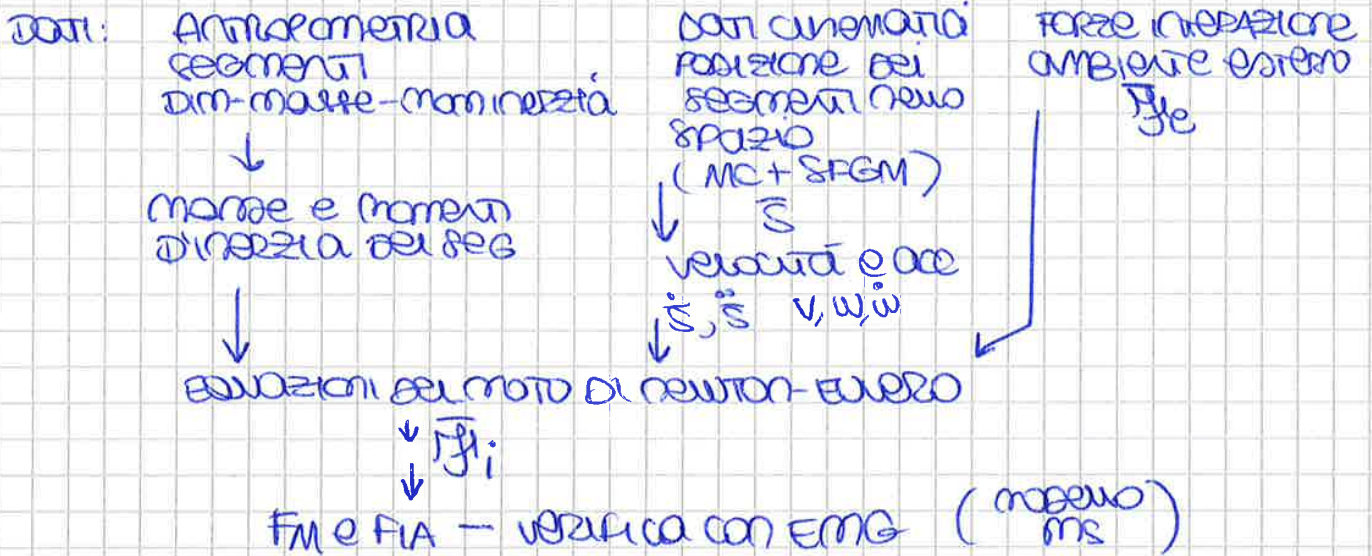 DATI:
ANTROPOMETRIA
SEGMENTI
DIM-MASSE-MOM INERZIA
↓
MASSE E MOMENTI
D'INERZIA DEI SEG
↓
DATI CINEMATICI
POSIZIONE DEI
SEGMENTI NELLO
SPAZIO
(MC+SFGM)
S̅
↓
VELOCITÀ E ACC
Ṡ, S̈ V, ω, ω̇
↓
FORZE INTERAZIONE
AMBIENTE ESTERNO
EQUAZIONI DEL MOTO DI NEWTON-EULERO
↓
↓
FM e FIA — VERIFICA CON EMG (MODELLO
MS)